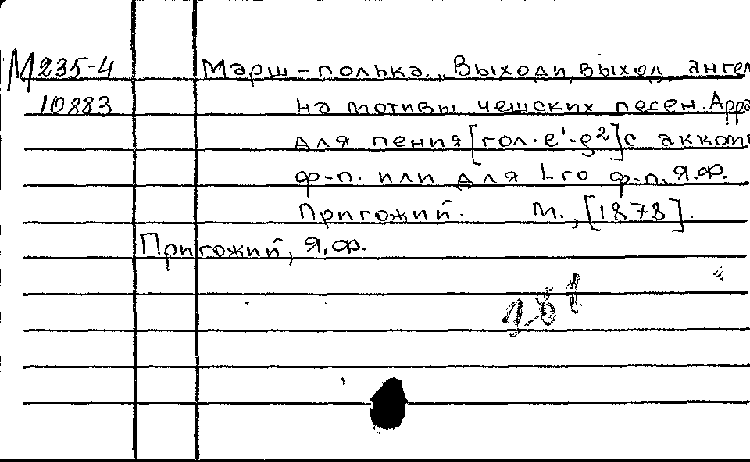 М 235-4 Марш-полька „Выходи, выход, ангел
10883 на мотивы чешских песен. Арра
для пения [гол. e¹-g²] с акком
ф-п. или для 1-го ф-п. Я.Ф.
Пригожий. М., [1878].
Пригожий, Я.Ф.